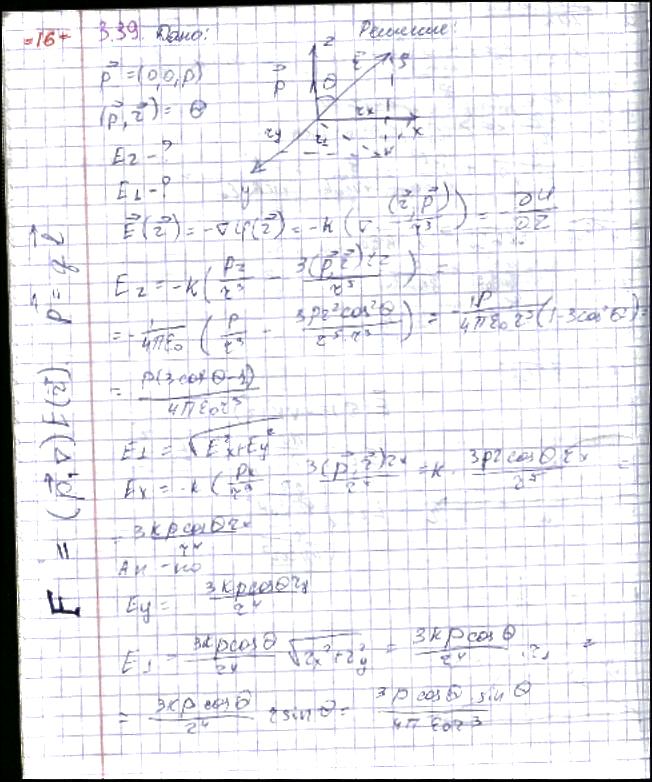 =16=
3.39. Дано: Решение:
p⃗ = (0,0,p)
(p⃗, r⃗) = θ
E_z - ?
E_⊥ - ?
z p⃗ θ r⃗ r_x x r_y y
E⃗(r⃗) = -∇φ(r⃗) = -k (∇ (r⃗, p⃗)/r³) = -∂φ/∂r
E_z = -k (p_z/r³ - 3(p⃗, r⃗) r_z/r⁵) =
= -1/4πε₀ (p/r³ - 3pr²cos²θ/r³·r²) = -1p/4πε₀r³ (1-3cos²θ) =
= p(3cos²θ-1)/4πε₀r³
E_⊥ = √(E²x+E²y)
E_x = -k (p_x/r³ - 3(p⃗, r⃗) r_x/r⁵) = k · 3pr cosθ r_x/r⁵ =
= 3kp cosθ r_x/r⁴
Ан-но
E_y = 3kp cosθ r_y/r⁴
E_⊥ = 3kp cosθ/r⁴ √(r_x²+r_y²) = 3kp cosθ/r⁴ · r_⊥ =
= 3kp cosθ/r⁴ r sinθ = 3p cosθ · sinθ/4πε₀r³
F = (p⃗, ∇) E(r⃗) p⃗ = q l⃗